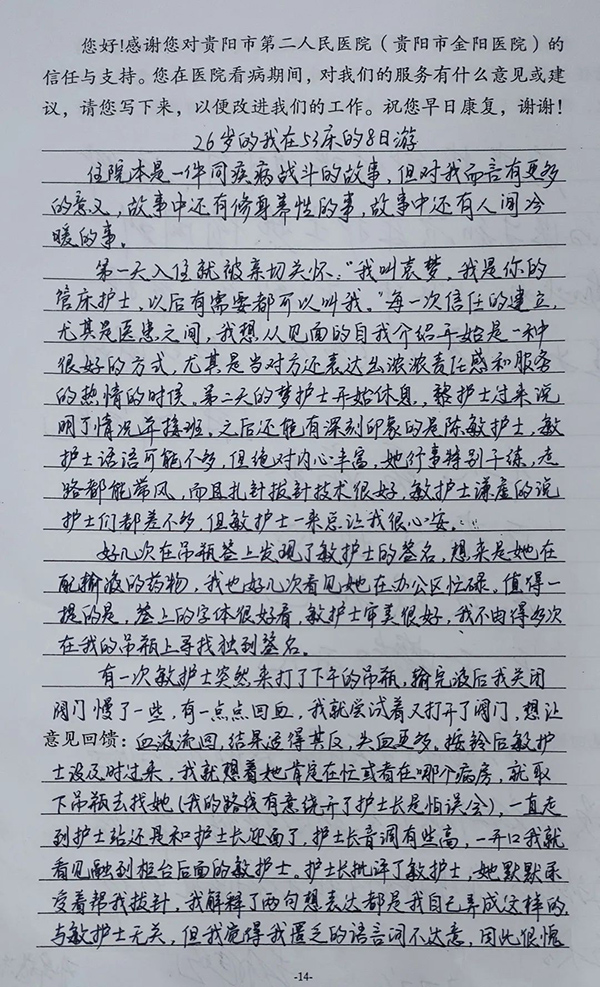 您好!感谢您对贵阳市第二人民医院（贵阳市金阳医院）的
信任与支持。您在医院看病期间，对我们的服务有什么意见或建
议，请您写下来，以便改进我们的工作。祝您早日康复，谢谢!
26岁的我在53床的8日游
住院本是一件同疾病战斗的故事，但对我而言有更多
的意义，故事中还有修身养性的事，故事中还有人间冷
暖的事。
第一天入住就被亲切关怀："我叫袁梦，我是你的
管床护士，以后有需要都可以叫我。"每一次信任的建立，
尤其是医患之间，我想从见面的自我介绍开始是一种
很好的方式，尤其是当对方还表达出浓浓责任感和服务
的热情的时候。第二天的梦护士开始休息，护士过来说
明了情况并接班。之后还能有深刻印象的是陈敏护士，敏
护士话语可能不多，但绝对内心丰富，她行事特别干练，走
路都能带风，而且扎针拔针技术很好，敏护士谦虚的说
护士们都差不多，但敏护士一来总让我很心安...
好几次在吊瓶签上发现了敏护士的签名，想来是她在
配输液的药物，我也好几次看见她在办公区忙碌。值得一
提的是，签上的字体很好看，敏护士审美很好，我不由得多次
在我的吊瓶上寻找独到签名。
有一次敏护士突然来打了下午的吊瓶，输完液后我关闭
阀门慢了一些，有一点点回血，我就尝试着又打开了阀门，想让
意见回馈：血液流回，结果适得其反，失血更多，按铃后敏护
士没及时过来，我就想着她肯定在忙或者在哪个病房，就取
下吊瓶去找她(我的路线有意绕开了护士长是怕误会)，一直走
到护士站还是和护士长迎面了，护士长音调有些高，一开口我就
看见融到柜台后面的敏护士。护士长批评了敏护士，她默默承
受着帮我拔针，我解释了两句想表达都是我自己弄成这样的，
与敏护士无关，但我觉得我匮乏的语言词不达意，因此很愧
-14-